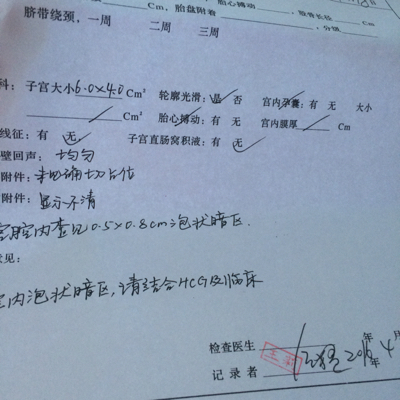 Cm, 胎盘附着 胎心搏动 股骨长径
脐带绕颈, 一周 二周 三周 分级
科: 子宫大小 6.0×4.0 Cm² 轮廓光滑: 是 否 宫内孕囊: 有 无 大小
Cm² 胎心搏动: 有 无 宫内膜厚 Cm
线征: 有 无 子宫直肠窝积液: 有 无
壁回声: 均匀
附件: 未见明确切占位
附件: 显示不清
宫腔内查见0.5×0.8cm泡状暗区.
意见:
宫内泡状暗区,请结合HCG及临床
检查医生
记录者 年 4 月